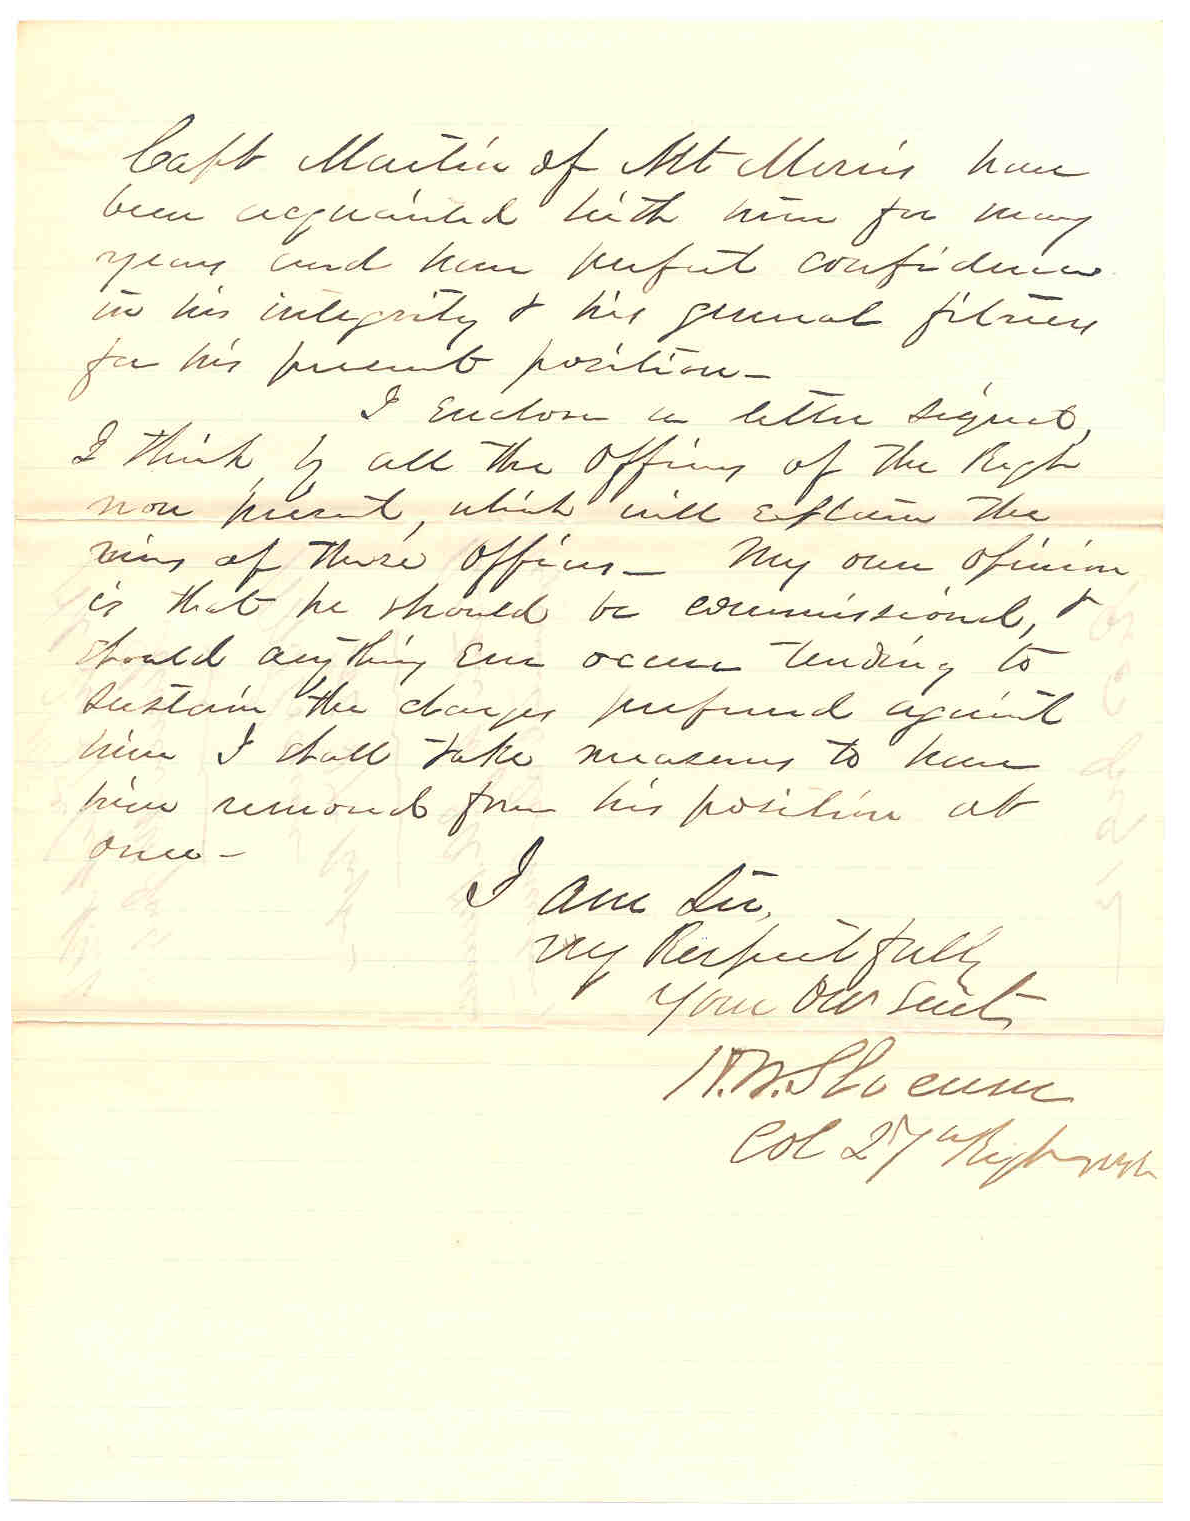 Capt Martin of Mt Morris have
been acquainted with him for many
years and have perfect confidence
in his integrity & his general fitness
for his present position—
I enclose a letter signed,
I think, by all the Officers of the Regt
now present, which will explain the
views of those Officers— My own opinion
is that he should be commissioned, &
should anything ever occur tending to
sustain the charges preferred against
him I shall take measures to have
him removed from his position at
once—
I am Sir,
Very Respectfully
Your Obt Servt
H.W. Slocum
Col 27th Regt